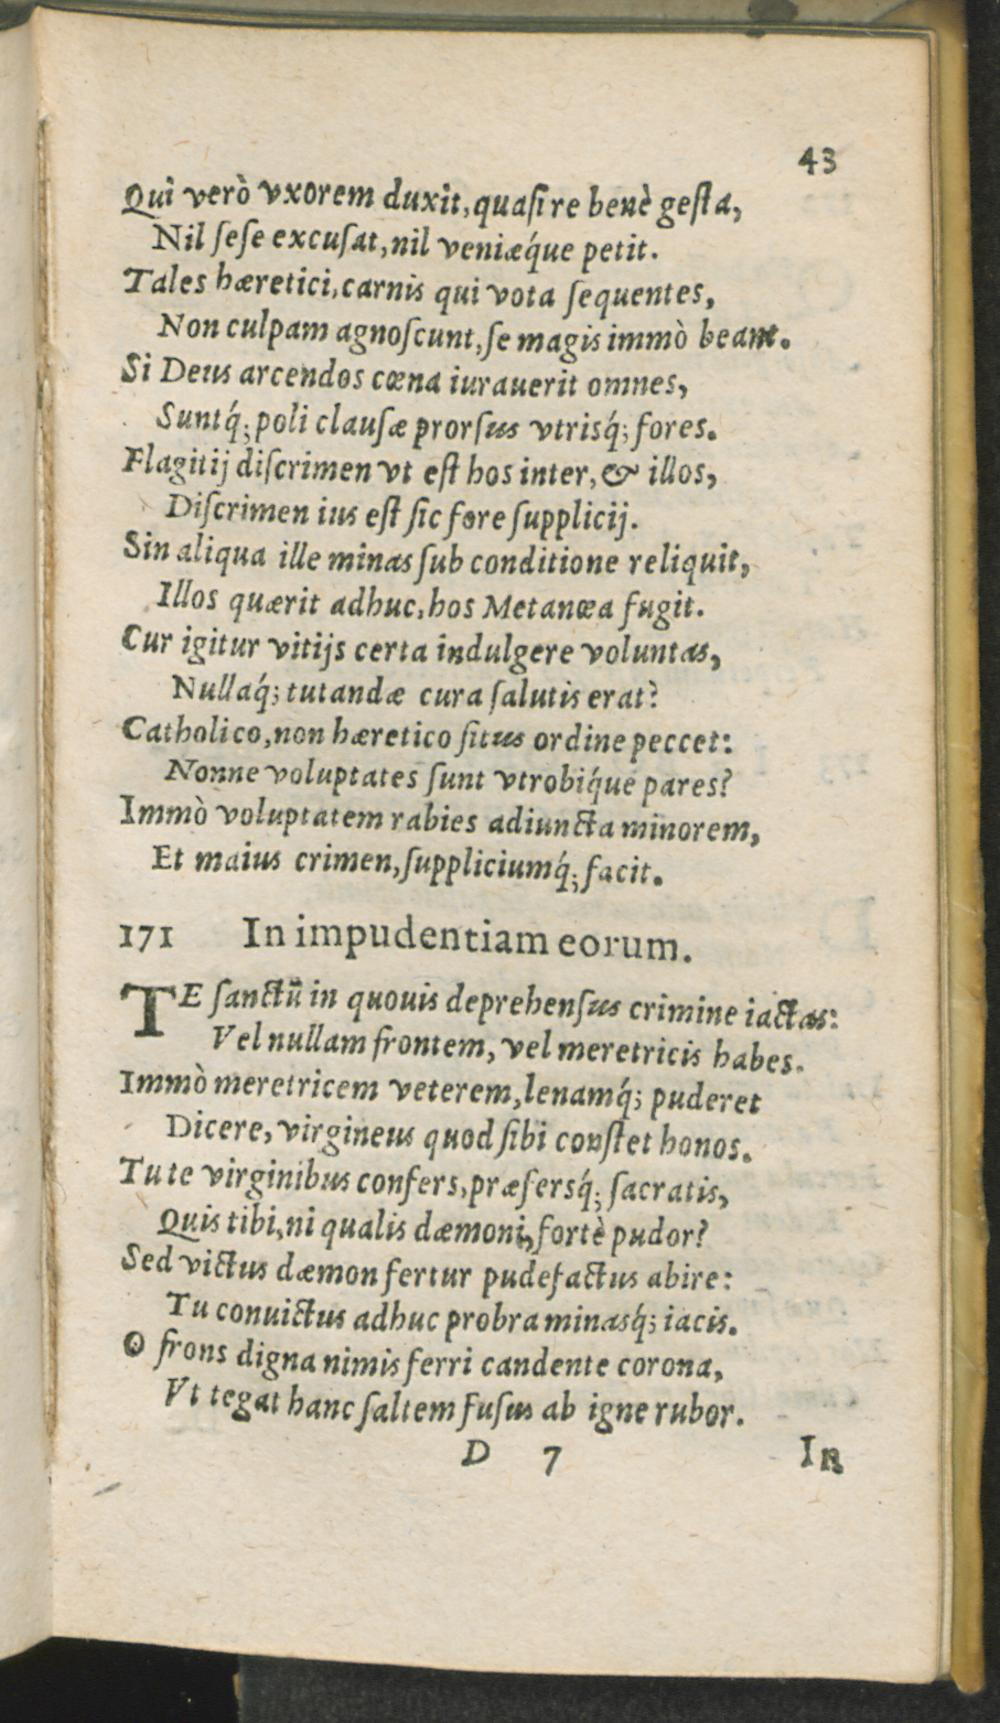 43
Qui verò vxorem duxit, quasi re benè gesta,
Nil sese excusat, nil veniæq́ue petit.
Tales hæretici, carnis qui vota sequentes,
Non culpam agnoscunt, se magis immò beant.
Si Deus arcendos cœna iurauerit omnes,
Suntq́; poli clausæ prorsus vtrisq́; fores.
Flagitij discrimen vt est hos inter, & illos,
Discrimen ius est sic fore supplicij.
Sin aliqua ille minas sub conditione reliquit,
Illos quærit adhuc, hos Metanœa fugit.
Cur igitur vitijs certa indulgere voluntas,
Nullaq́; tutandæ cura salutis erat?
Catholico, non hæretico situs ordine peccet:
Nonne voluptates sunt vtrobiq́ue pares?
Immò voluptatem rabies adiuncta minorem,
Et maius crimen, suppliciumq́; facit.
171 In impudentiam eorum.
TE sanctũ in quouis deprehensus crimine iactas:
Vel nullam frontem, vel meretricis habes.
Immò meretricem veterem, lenamq́; puderet
Dicere, virgineus quod sibi constet honos.
Tu te virginibus confers, præfersq́; sacratis,
Quis tibi, ni qualis dæmoni, fortè pudor?
Sed victus dæmon fertur pudefactus abire:
Tu conuictus adhuc probra minasq́; iacis.
O frons digna nimis ferri candente corona,
Vt tegat hanc saltem fusus ab igne rubor.
D 7 In